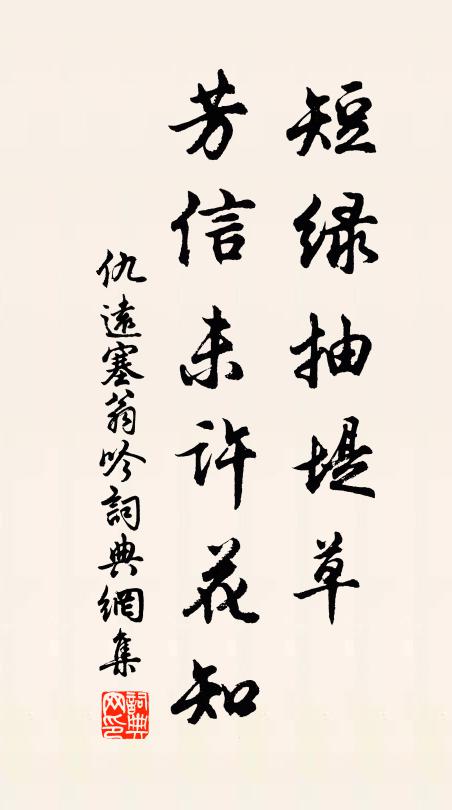 短緑抽堤草
芳信未許花知
仇遠塞翁吟詞典網集
詞典网印